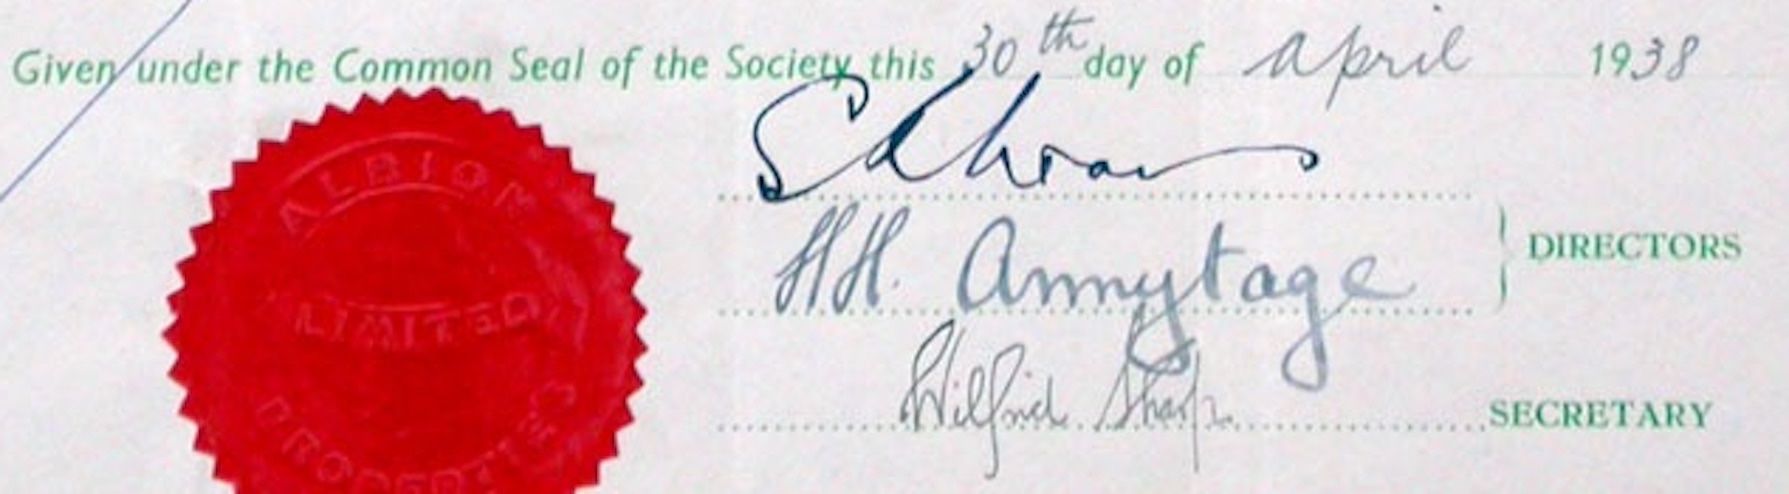 Given under the Common Seal of the Society this 30th day of april 1938
ALBION
LIMITED
PROPERTIES
HH. Armytage
DIRECTORS
Wilfrid Sharp. SECRETARY